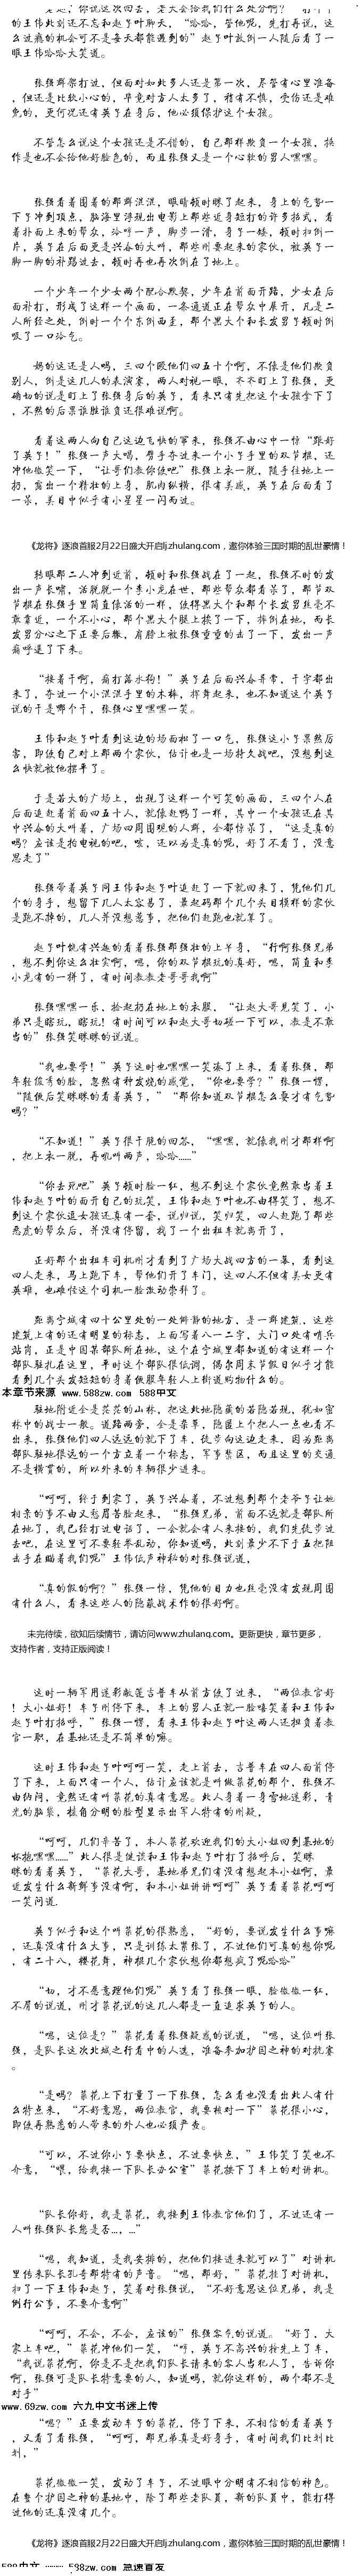 “老赵，你说这次回去，老大会给我们什么处分啊？” 打个个
的王伟此刻还不忘和赵子叶聊天，“哈哈，管他呢，先打再说，这
么过瘾的机会可不是每天都能遇到的”赵子叶放倒一人随后看了一
眼王伟哈哈大笑道。
张强群架打过，但面对如此多人还是第一次，尽管有心里准备
，但还是比较小心的，毕竟对方人太多了，稍有不慎，受伤还是难
免的，更何况还有英子在身后，他必须保护这个女孩。
不管怎么说这个女孩还是不错的，自己那样欺负一个女孩，换
作是也不会给他好脸色的，而且张强又是一个心软的男人嘿嘿。
张强看着围着的那群混混，眼睛顿时眯了起来，身上的气势一
下子冲到顶点，脑海里浮现出电影上那些近身短打的许多招式，看
着扑面上来的帮众，冷哼一声，脚步一滑，身子一矮，顿时扫倒一
片，英子在后面更是兴奋的大叫，那些刚要起来的家伙，被英子一
脚一脚的补踢过去，顿时再也再次倒在了地上。
一个少年一个少女两个配合默契，少年在前面开路，少女在后
面补打，形成了这样一个画面，一条通道正在帮众中展开，凡是二
人所经之处，倒时一个个东倒西歪，那个黑大个和长发男子顿时倒
吸了一口冷气。
妈的这还是人吗，三四个殴他们四五十个啊，不像是他们欺负
别人，倒是这几人的表演塞，两人对视一眼，齐齐盯上了张强，更
确切的说是盯上了张强身后的英子，看来只有先把这个女孩拿下了
，不然的后果谁胜谁负还很难说啊。
看着这两人向自己这边飞快的窜来，张强不由心中一惊“跟好
了英子！”张强一声大喝，劈手夺过来一个小子手里的双节棍，还
冲他微笑一下，“让哥们教你使吧”张强上衣一脱，随手往地上一
扔，露出一个精壮的上身，肌肉纵横，很有美感，英子在后面看了
一呆，美目中似乎有小星星一闪而过。
《龙将》逐浪首服2月22日盛大开启ljzhulang.com，邀你体验三国时期的乱世豪情！
转眼那二人冲到近前，顿时和张强战在了一起，张强不时的发
出一声长啸，活脱脱一个李小龙在世，那些帮众都看呆了，那节双
节棍在张强手里简直像活的一样，使得黑大个和那个长发男丝毫不
敢靠近，一个不小心，那个黑大个腿上挨了一下，摔倒在地，而长
发男分心之下正要后撤，肩膀上被张强重重的击了一下，发出一声
痛呼退了下来。
“接着干啊，痛打落水狗！”英子在后面兴奋异常，干字都出
来了，夺过一个小混混手里的木棒，挥舞起来，也不知道这个英子
说的干是哪个干，张强心里嘿嘿一笑。
王伟和赵子叶看到这边的场面松了一口气，张强这小子果然厉
害，即使自己对上那两个家伙，估计也是一场持久战吧，没想到这
么快就被他摆平了。
于是若大的广场上，出现了这样一个可笑的画面，三四个人在
后面追赶着前面四五十人，就像赶鸭子一样，其中一个女孩还在其
中兴奋的大叫着，广场四周围观的人群，全都惊呆了，“这是真的
吗？应该是拍电视的吧，唉，还以为是真的呢，好了不看了，没意
思走了”
张强带着英子同王伟和赵子叶追赶了一下就回来了，凭他们几
个的身手，想留下几人太容易了，最起码那个几个头目模样的家伙
是跑不掉的，几人并没想惹事，把他们赶跑也就算了。
赵子叶饶有兴趣的看着张强那强壮的上半身，“行啊张强兄弟
，想不到你这么壮实啊，嗯，你的双节棍玩的真好，嗯，简直和李
小龙有的一拼了，有时间教教老哥哥我啊”
张强嘿嘿一乐，捡起扔在地上的衣服，“让赵大哥见笑了，小
弟只是瞎玩，瞎玩！有时间可以和赵大哥切磋一下可以，教是不敢
当的”张强笑眯眯的说道。
“我也要学！”英子这时也嘿嘿一笑凑了上来，看着张强，那
年轻俊秀的脸，忽然有种发烧的感觉，“你也要学？”张强一愣，
“随使后笑眯眯的看着英子，”“那你知道双节棍怎么耍才有气势
吗？”
“不知道！”英子很干脆的回答，“嘿嘿，就像我刚才那样啊
，把上衣一脱，再吼叫两声，哈哈……”
“你去死吧”英子顿时脸一红，想不到这个家伙竟然敢当着王
伟和赵子叶的面开自己的玩笑，王伟和赵子叶也不由得笑了，想不
到这个家伙追女孩还真有一套，说归说，笑归笑，四人赶跑了那些
恶虎的帮众后，并没有停留，找了一个出租车就离开了，
正好那个出租车司机刚才看到了广场大战四方的一幕，看到这
四人走来，马上跑下车，帮他们开了车门，这四人不但有美女更有
英雄，也难怪这个司机一脸激动崇拜了。
距离宁城有四十公里处的一处僻静的地方，是一群建筑，这些
建筑上有的还有明显的标志，上面写着八一二字，大门口处有哨兵
站岗，正是中国某部队所在地，这个在宁城里都知道的有这样一个
部队驻扎在这里，平时这个部队很低调，偶尔周末节假日似乎才能
看到几个头发短短的身着俄服年轻人上街道购物什么的。
本章节来源 www.588zw.com 588中文
驻地附近全是茫茫的山林，把这北地隐藏的若隐若现，犹如密
林中的战士一般。道路两旁，全是杂草，隐匿上个把人一点也看不
出来，张强他们四人远远的就下了车、徒步向这边走来，因为距离
部队驻地很远的一个方立着一个标志，军事禁区，而且这里的交通
不是横贯的，所以外来的车辆很少进来。
“呵呵，终于到家了，英子兴奋着，不过想到那个老爷子让她
相亲的事不由又愁眉苦脸起来，“张强兄弟，前面不远就是部队所
在地了，我已经打过电话了，一会就会有人来接的，我们先徒步过
去吧，在这里可不要轻举乱动，你知道吗，此刻最少不下于五把阻
击手在瞄着我们呢”王伟低声神秘的对张强说道，
“真的假的啊？”张强一惊，凭他的目力也丝毫没有发现周围
有什么人，看来这些人的隐蔽战术作的很好啊。
未完待续，欲知后续情节，请访问www.zhulang.com。更新更快，章节更多，
支持作者，支持正版阅读！
这时一辆军用迷彩敞篷吉普车从前方使了过来，“两位教官好
！大小姐好！车子刚停下来，车上的男人正就一脸嘻笑着和王伟和
赵子叶打招呼，”张强一愣，看来王伟和赵子叶这两人还担负着教
官一职，在基地还是不简单的嘛。
这时王伟和赵子叶呵呵一笑，走上前去，吉普车在四人面前停
了下来，上面只有一个人，估计应该就是叫做菜花的那个，张强不
由纳闷，竟然还有叫菜花的真有意思。此人身着一身雪地迷彩，青
光的脑袋，棱角分明的脸型显示出军人特有的刚毅，
“呵呵，几们辛苦了，本人菜花欢迎我们的大小姐回到基地的
怀抱嘿嘿……”此人很是使谎和王伟和赵子叶打了招呼后，笑眯
眯的看着英子，“菜花大哥，基地弟兄们有没有想起本小姐啊，最
近发生什么新鲜事没有啊，和本小姐讲讲呵呵”英子看着菜花呵呵
一笑问道.
英子似乎和这个叫菜花的很熟悉，“好的，要说发生什么事嘛
，还真没有什么大事，只是训练太紧张了，不过他们可真的想你呢
，有二十八，樱花舞，神棍几个家伙想你都想疯了呢哈哈”
“切，才不愿意理他们呢”英子看了张强一眼，脸微微一红，
不屑的说道，刚才菜花说的这几人都是一直追求英子的人。
“嗯，这位是？”菜花看着张强疑惑的说道，“嗯，这位叫张
强，是队长这次北城之行看中的人选，准备参加护国之神的对抗赛
。
“是吗？菜花上下打量了一下张强，怎么看也没看出此人有什
么特点来，“不好意思，两位教官，我要核对一下”菜花很小心，
即使再熟悉的人带来的外人也必须严查。
“可以，不过你小子要快点，不过要快点，”王伟笑了笑也不
介意，“喂，给我接一下队长办公室”菜花按下了车上的对讲机。
“队长你好，我是菜花，我接到王伟教官他们了，不过还有一
人叫张强队长您是否…，…”
“嗯，我知道，是我安排的，把他们接进来就可以了”对讲机
里传来队长孔奇那特有的声音。“嗯，那好，”菜花挂了对讲机，
扫了一下王伟和赵子，笑着对张强说，“不好意思这位兄弟，我是
例行公事，不要介意啊”
“呵呵，不会，不会，应该的”张强客气的说道。“好了，大
家上车吧，”菜花冲他们一笑，“哼，英子不高兴的抢先上了车，
“我说菜花啊，你是不是把我们队长请来的客人当犯人了，告诉你
啊，张强可是队长特意要的人，知道吗，就你这样的，两个都不是
对手”
www.69zw.com 六九中文书迷上传
“嗯？”正要发动车子的菜花，停了下来，不相信的看着英子
，又看了看张强，“呵呵，那兄弟真是好身手，有时间我们比划比
划，”
菜花微微一笑，发动了车子，不过眼中分明有不相信的神色。
在整个护国之神的基地中，除了那些老队员，新的队员中，能打得
过他的还真没有几个。
《龙将》逐浪首服2月22日盛大开启ljzhulang.com，邀你体验三国时期的乱世豪情！